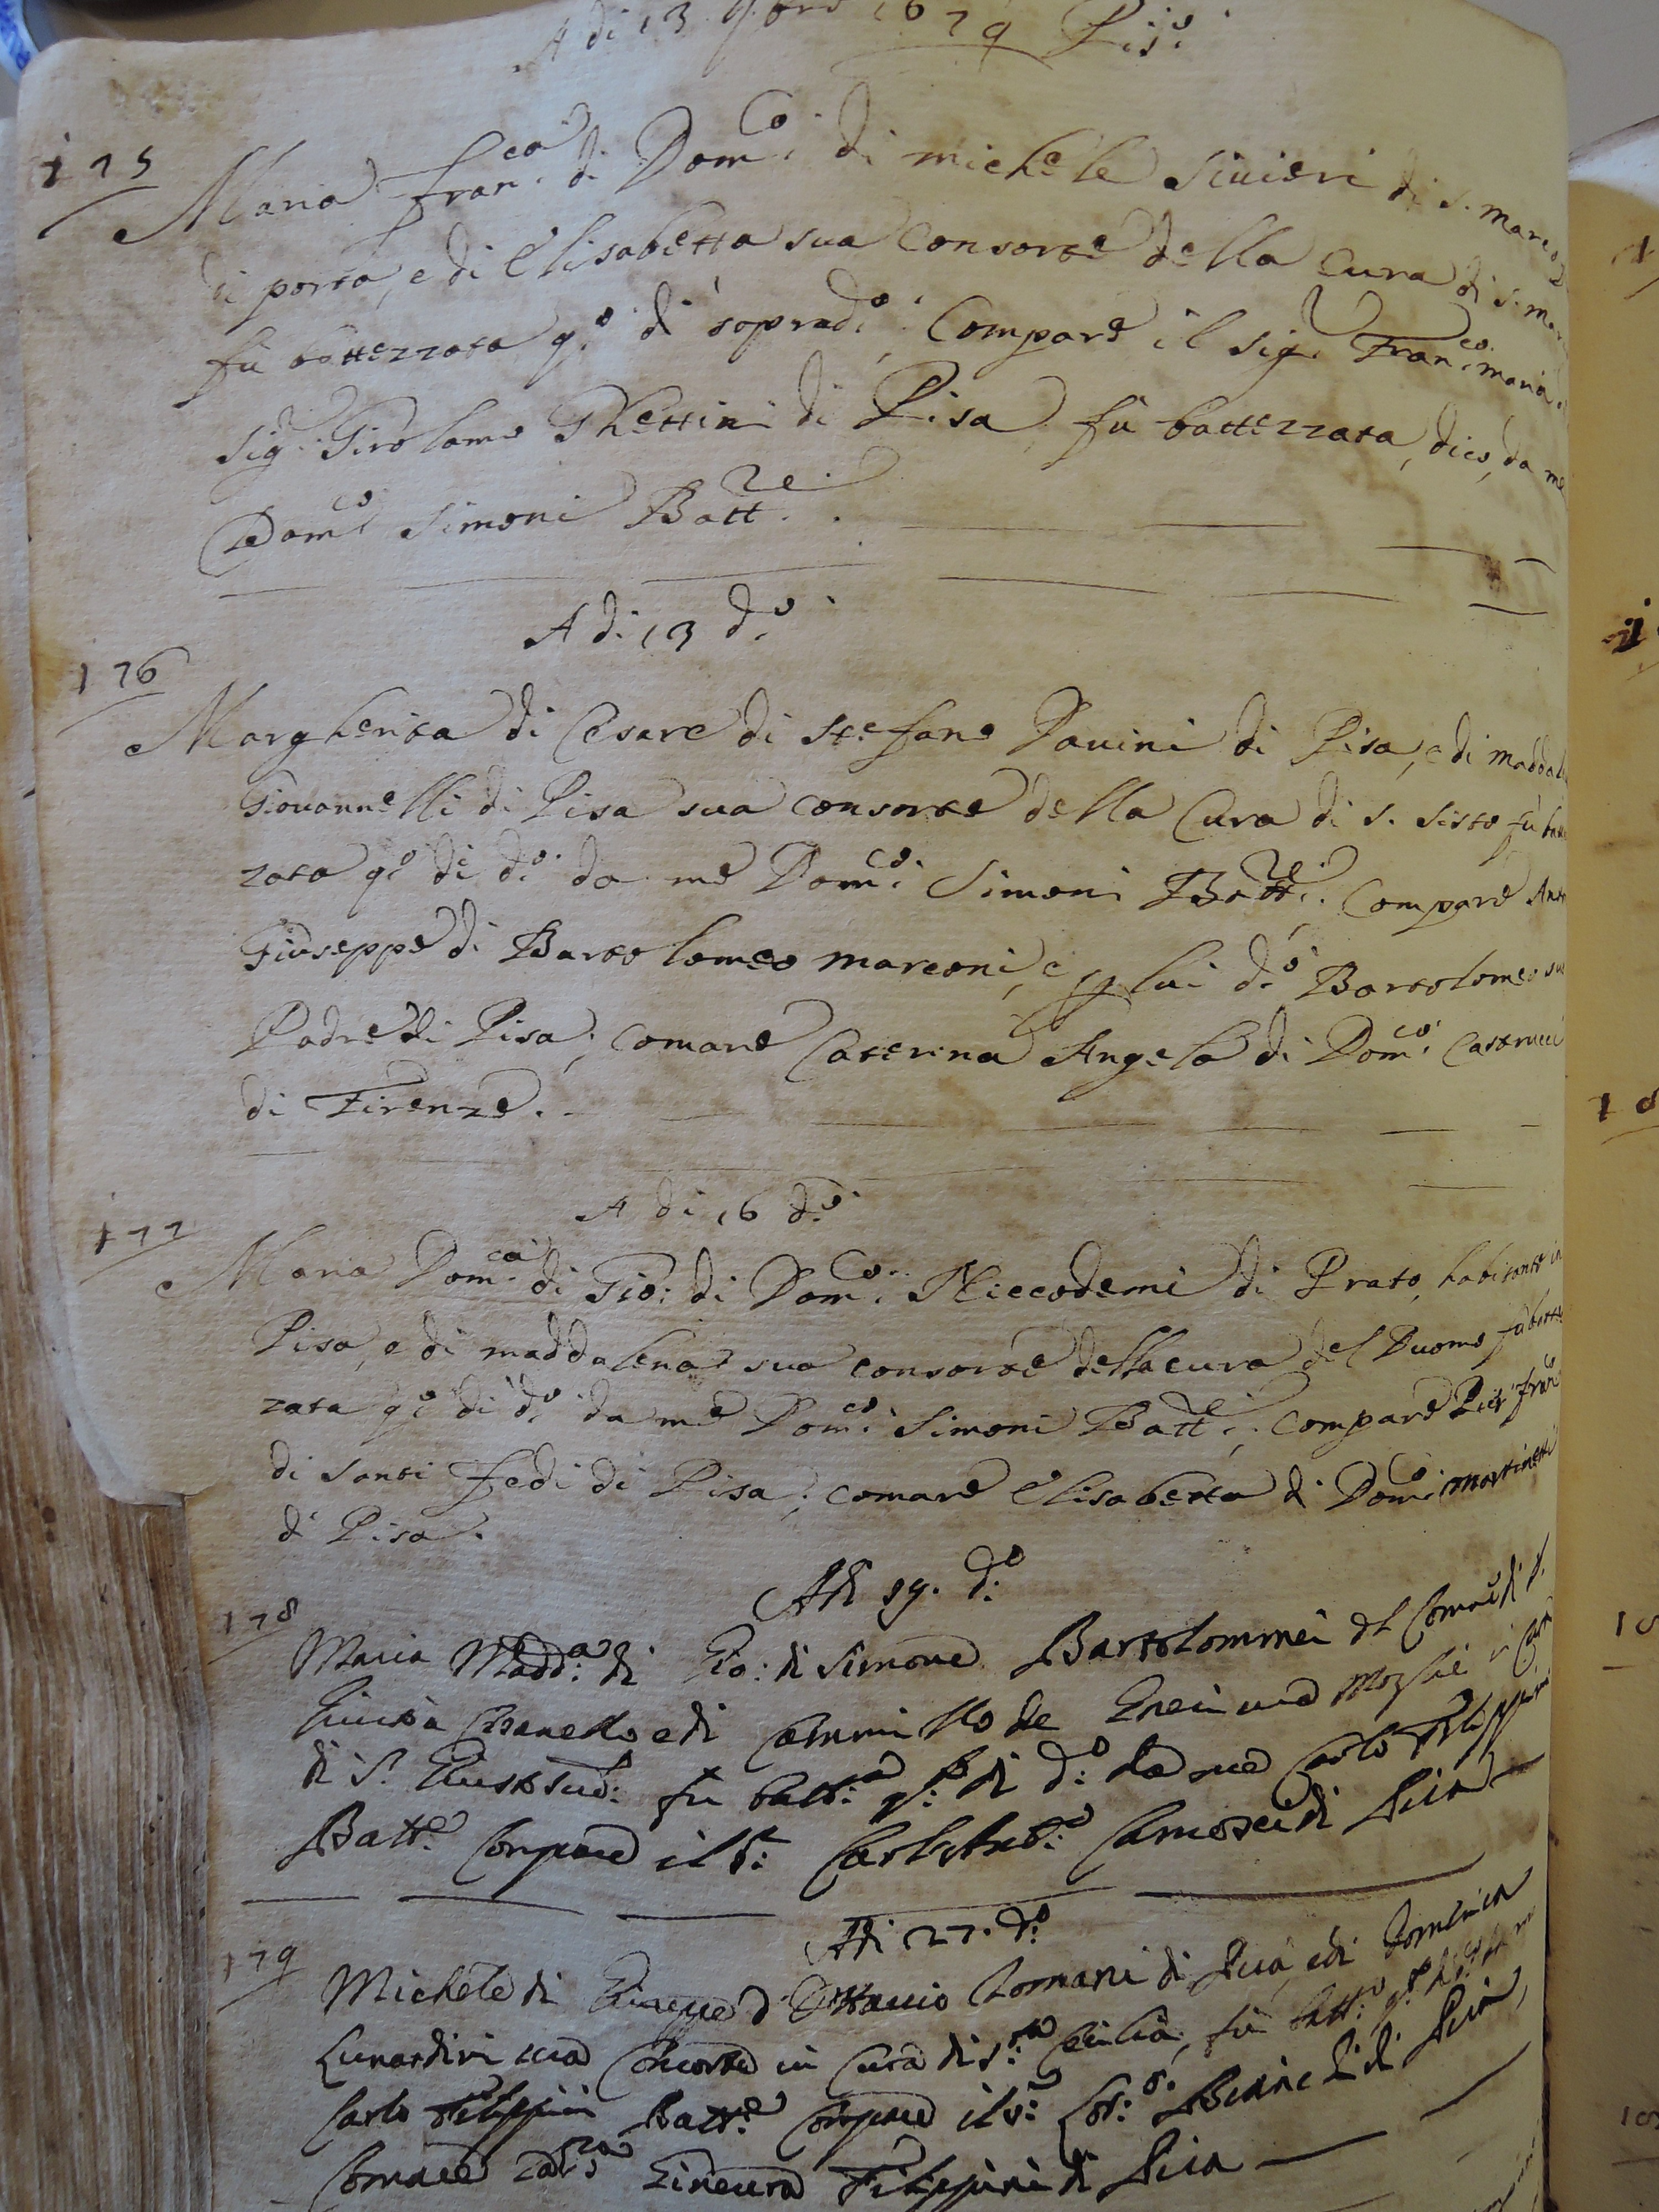 A dì 13 9bre 1679 Pis.o
175
Maria Fran.ca di Dom.co di Michele Siuieri di S. Marco
di porta, e di Elisabetta sua Consorte della Cura di S. Mar
fù battezzata q.o dì soprad.o Compare il Sig. Fran.co Maria
Sig. Girolamo Ghettini di Pisa fù battezzata, dico, da me
Dom.co Simoni Batt.re
A dì 13 d.o
176
Margherita di Cesare di Stefano Pauini di Pisa, e di Maddal
Giouannelli di Pisa sua consorte della Cura di S. Sisto fù batt
zata q.o dì d.o da me Dom.co Simoni Batt.re; Compare Ant
Giuseppe di Bartolomeo Marconi, e p lui d.o Bartolomeo su
Padre di Pisa; Comare Caterina Angela di Dom.co Castrucci
di Firenze.
A dì 16 d.o
177
Maria Dom.ca di Gio: di Dom.co Niccodemi di Prato, habitante in
Pisa, e di Maddalena sua consorte della cura del Duomo fù batte
zata q.o dì d.o da me Dom.co Simoni Batt.re; Compare Pier Fran.co
di Santi Fedi di Pisa; comare Elisabetta di Dom.co Martinetti
di Pisa.
Adì 19. d.o
178
Maria Madd:a di Gio: di Simone Bartolommei del Comune di S.
e di Cammilla sua Moglie in Cura
di S. fu batt:a q:o dì d:o da me Carlo Filippini
Batt.e Compare il S.r di Pisa
Adì 27. d:o
179
Michele di Giuseppe d'Ottauio Romani di Pisa, e di Domenica
Lunardini sua Consorte in Cura di S.ta Cecilia, fù batt:o q:o dì d:o da me
Carlo Filippini Batt.e Compare il S.r di Pisa,
Comare Gineura Filippini di Pisa